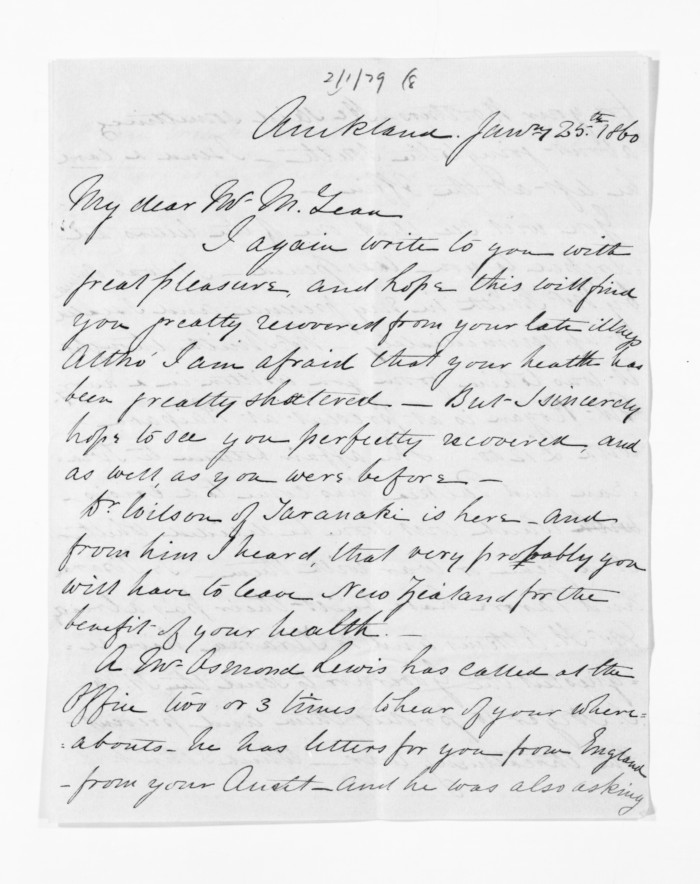 2/1/29 (8
Auckland. Janry 25th 1860
My dear Mr. McLean
I again write to you with
great pleasure, and hope this will find
you greatly recovered from your late illness
Altho' I am afraid that your health has
been greatly shattered — But I sincerely
hope to see you perfectly recovered, and
as well, as you were before —
Dr. Wilson of Taranaki is here - and
from him I heard, that very probably you
will have to leave New Zealand for the
benefit of your health. —
A Mr Osmond Lewis has called at the
Office two or 3 times to hear of your where=
=abouts - he has letters for you from England
- from your Aunt - and he was also asking